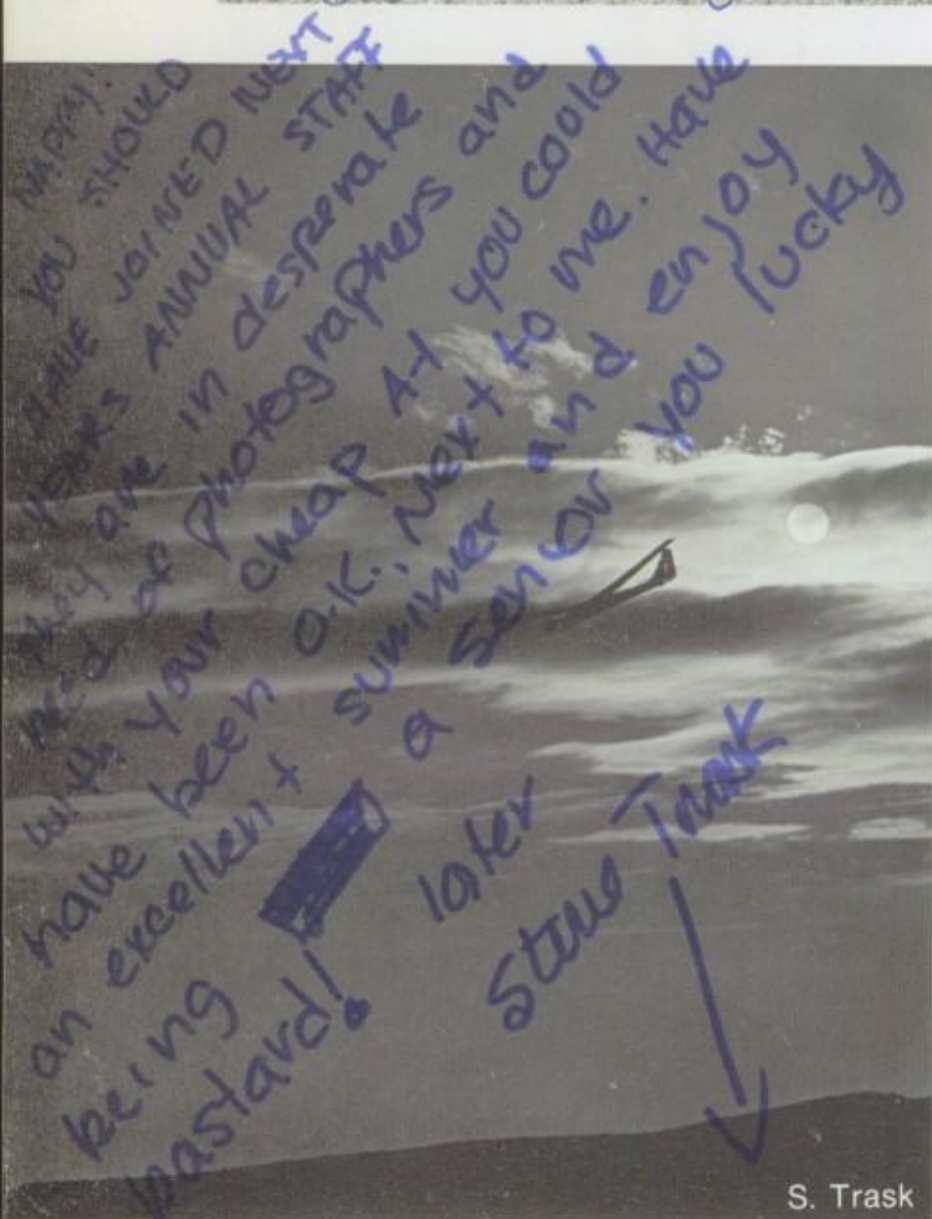 NAPPY!
YOU SHOULD
HAVE JOINED NEXT
YEARS ANNUAL STAFF
they are in desperate
need of photographers and
with your cheap A-1 you could
have been O.K., Next to me. Have
an excellent summer and enjoy
being a senior you lucky
bastard!
later
Steve Trask
S. Trask